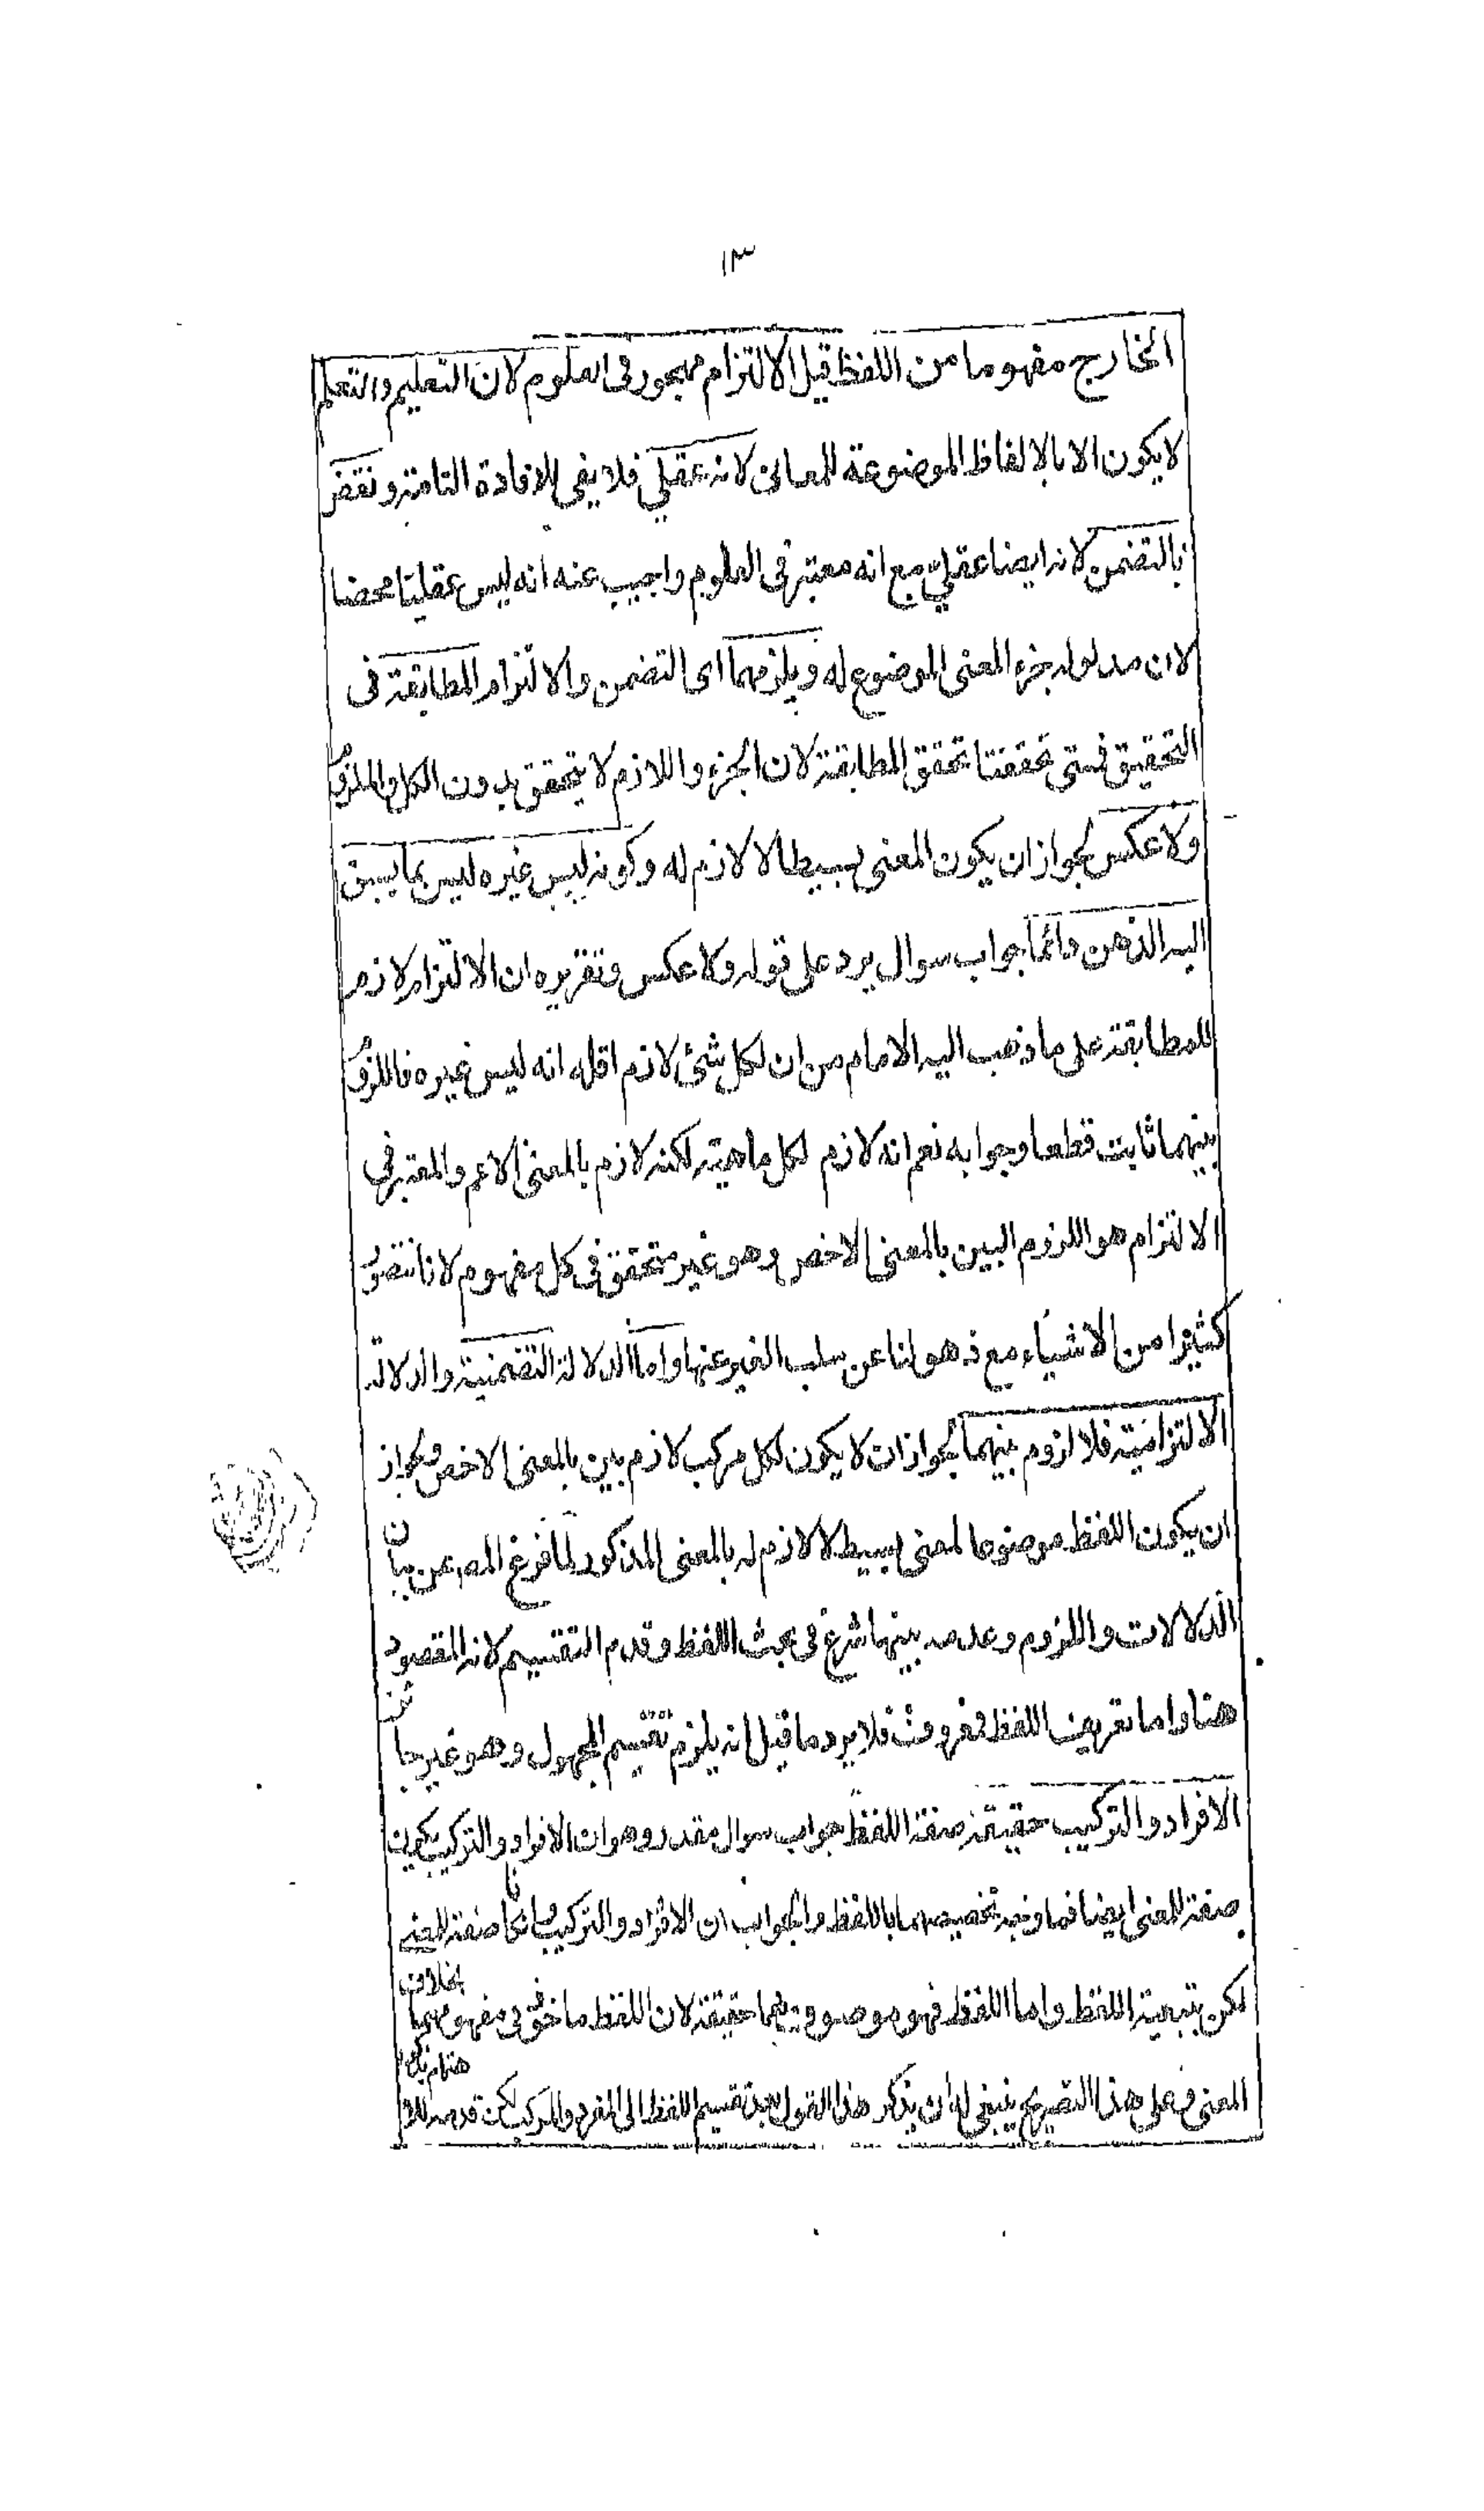 ١٣
الخارج مفهوما من اللفظ قيل الالتزام مهجور فى العلوم لان التعليم والتعلم
لايكون الا بالالفاظ الموضوعة للمعانى لانه عقلي فلا يفى للافادة التامة ونقض
بالتضمن لانه ايضا عقلي مع انه معتبر فى العلوم واجيب عنه انه ليس عقليا محضا
لان مدلوله جزء المعنى الموضوع له ويلزمهما اى التضمن والالتزام المطابقة فى
التحقيق فمتى تحققتا تحقق المطابقة لان الجزء واللازم لا يتحقق بدون الكل والملزوم
ولا عكس لجواز ان يكون المعنى بسيطا لا لازم له وكونه ليس غيره ليس مما يسبق
اليه الذهن دائما جواب سوال يرد على قوله ولا عكس وتقريره ان الالتزام لازم
للمطابقة على ما ذهب اليه الامام من ان لكل شئ لازم اقله انه ليس غيره فاللزوم
بينهما ثابت قطعا وجوابه نعم انه لازم لكل ماهية لكنه لازم بالمعنى الاعم والمعتبر فى
الالتزام هو اللزوم البين بالمعنى الاخص وهو غير متحقق فى كل مفهوم لانا نتصور
كثيرا من الاشياء مع ذهولنا عن سلب الغير عنها واما الدلالة التضمنية والدلالة
الالتزامية فلا لزوم بينهما لجواز ان لا يكون لكل مركب لازم بين بالمعنى الاخص ولجواز
ان يكون اللفظ موضوعا لمعنى بسيط لا لازم له بالمعنى المذكور لما فرغ المصـ عن بيان
الدلالات واللزوم وعدمه بينها شرع فى بحث اللفظ وقدم التقسيم لانه المقصود
هنا واما تعريف اللفظ فمعروف فلا يرد ما قيل انه يلزم تقسيم المجهول وهو غير جائز
الافراد والتركيب حقيقة صفة اللفظ جواب سوال مقدر وهو ان الافراد والتركيب يكون
صفة للمعنى ايضا فما وجه تخصيصهما باللفظ والجواب ان الافراد والتركيب وان كانا صفة للمعنى
لكن بتبعية اللفظ واما اللفظ فهو موصوف بهما حقيقة لان اللفظ ماخوذ فى مفهومهما بخلاف
المعنى وعلى هذا التصريح ينبغى له ان يذكر هذا القول بعد تقسيم اللفظ الى المفرد والمركب لكن قدمه